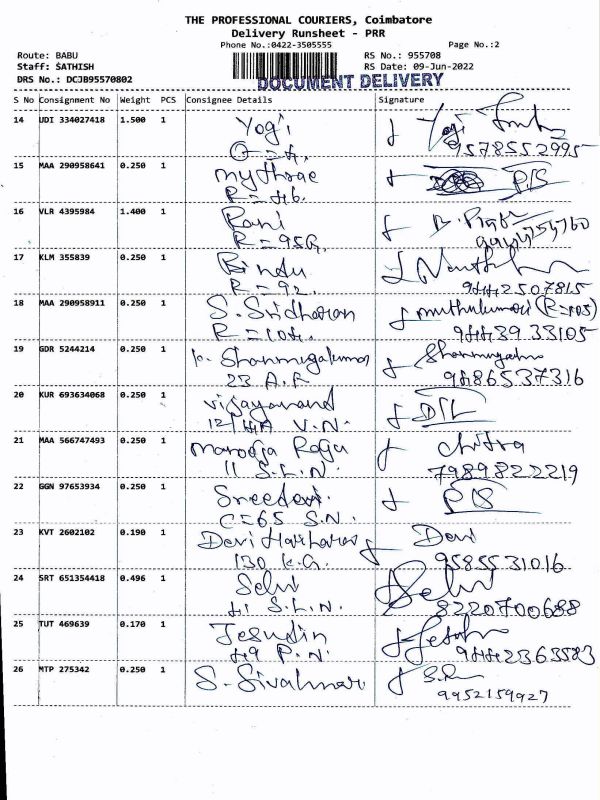 THE PROFESSIONAL COURIERS, Coimbatore
Delivery Runsheet - PRR
Phone No.:0422-3505555 Page No.:2
Route: BABU RS No.: 955708
Staff: SATHISH RS Date: 09-Jun-2022
DRS No.: DCJB95570802
DOCUMENT DELIVERY
S No Consignment No Weight PCS Consignee Details Signature
14 UDI 334027418 1.500 1 Yogi
9578552995
15 MAA 290958641 0.250 1 mythrae
R=46.
16 VLR 4395984 1.400 1 Rani
R=95G.
17 KLM 355839 0.250 1 Bindu
R=92. 9442507815
18 MAA 290958911 0.250 1 S. Sridharan muthukumari (R=105)
R=104. 9443933105
19 GDR 5244214 0.250 1 Shanmugakumar
23 A.F 9486537316
20 KUR 693634068 0.250 1 vijayanand
12/4A V.N.
21 MAA 566747493 0.250 1 Marooja Raga chitra
11 S.L.N. 7989822219
22 GGN 97653934 0.250 1 Sreedevi
C=65 S.N.
23 KVT 2602102 0.190 1 Devi Devi
130 K.G. 9585531016
24 SRT 651354418 0.496 1 Selvi Selvi
41 S.L.N. 8220700688
25 TUT 469639 0.170 1 Jesudin
49 P.N. 9442363583
26 MTP 275342 0.250 1 S. Sivakumar S.R
9952159927